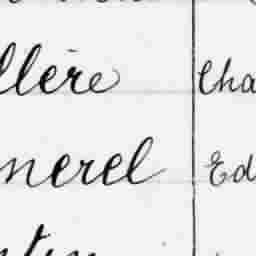 llère Cha
nerel Ed